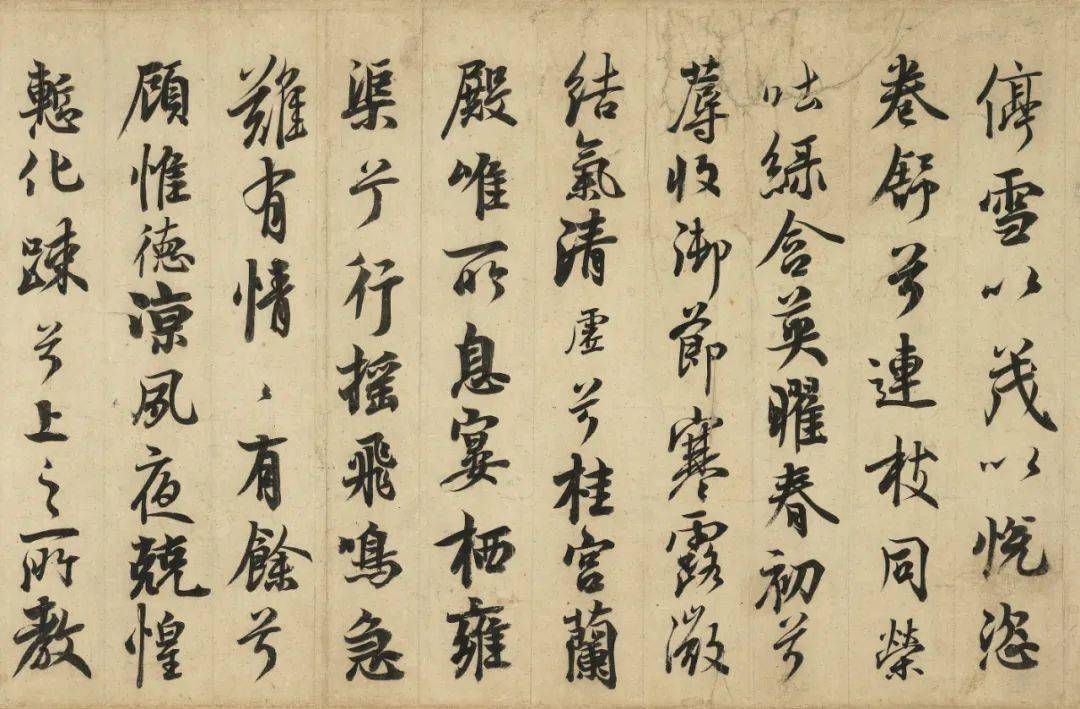 停雪以茂以悦恣
卷舒兮連枝同榮
吐綠含英曜春初兮
蓐收御節寒露微
結氣清虛兮桂宮蘭
殿唯所息宴栖雍
渠兮行摇飛鳴急
難有情〻有餘兮
顧惟德涼夙夜兢惶
慙化踈兮上之所教